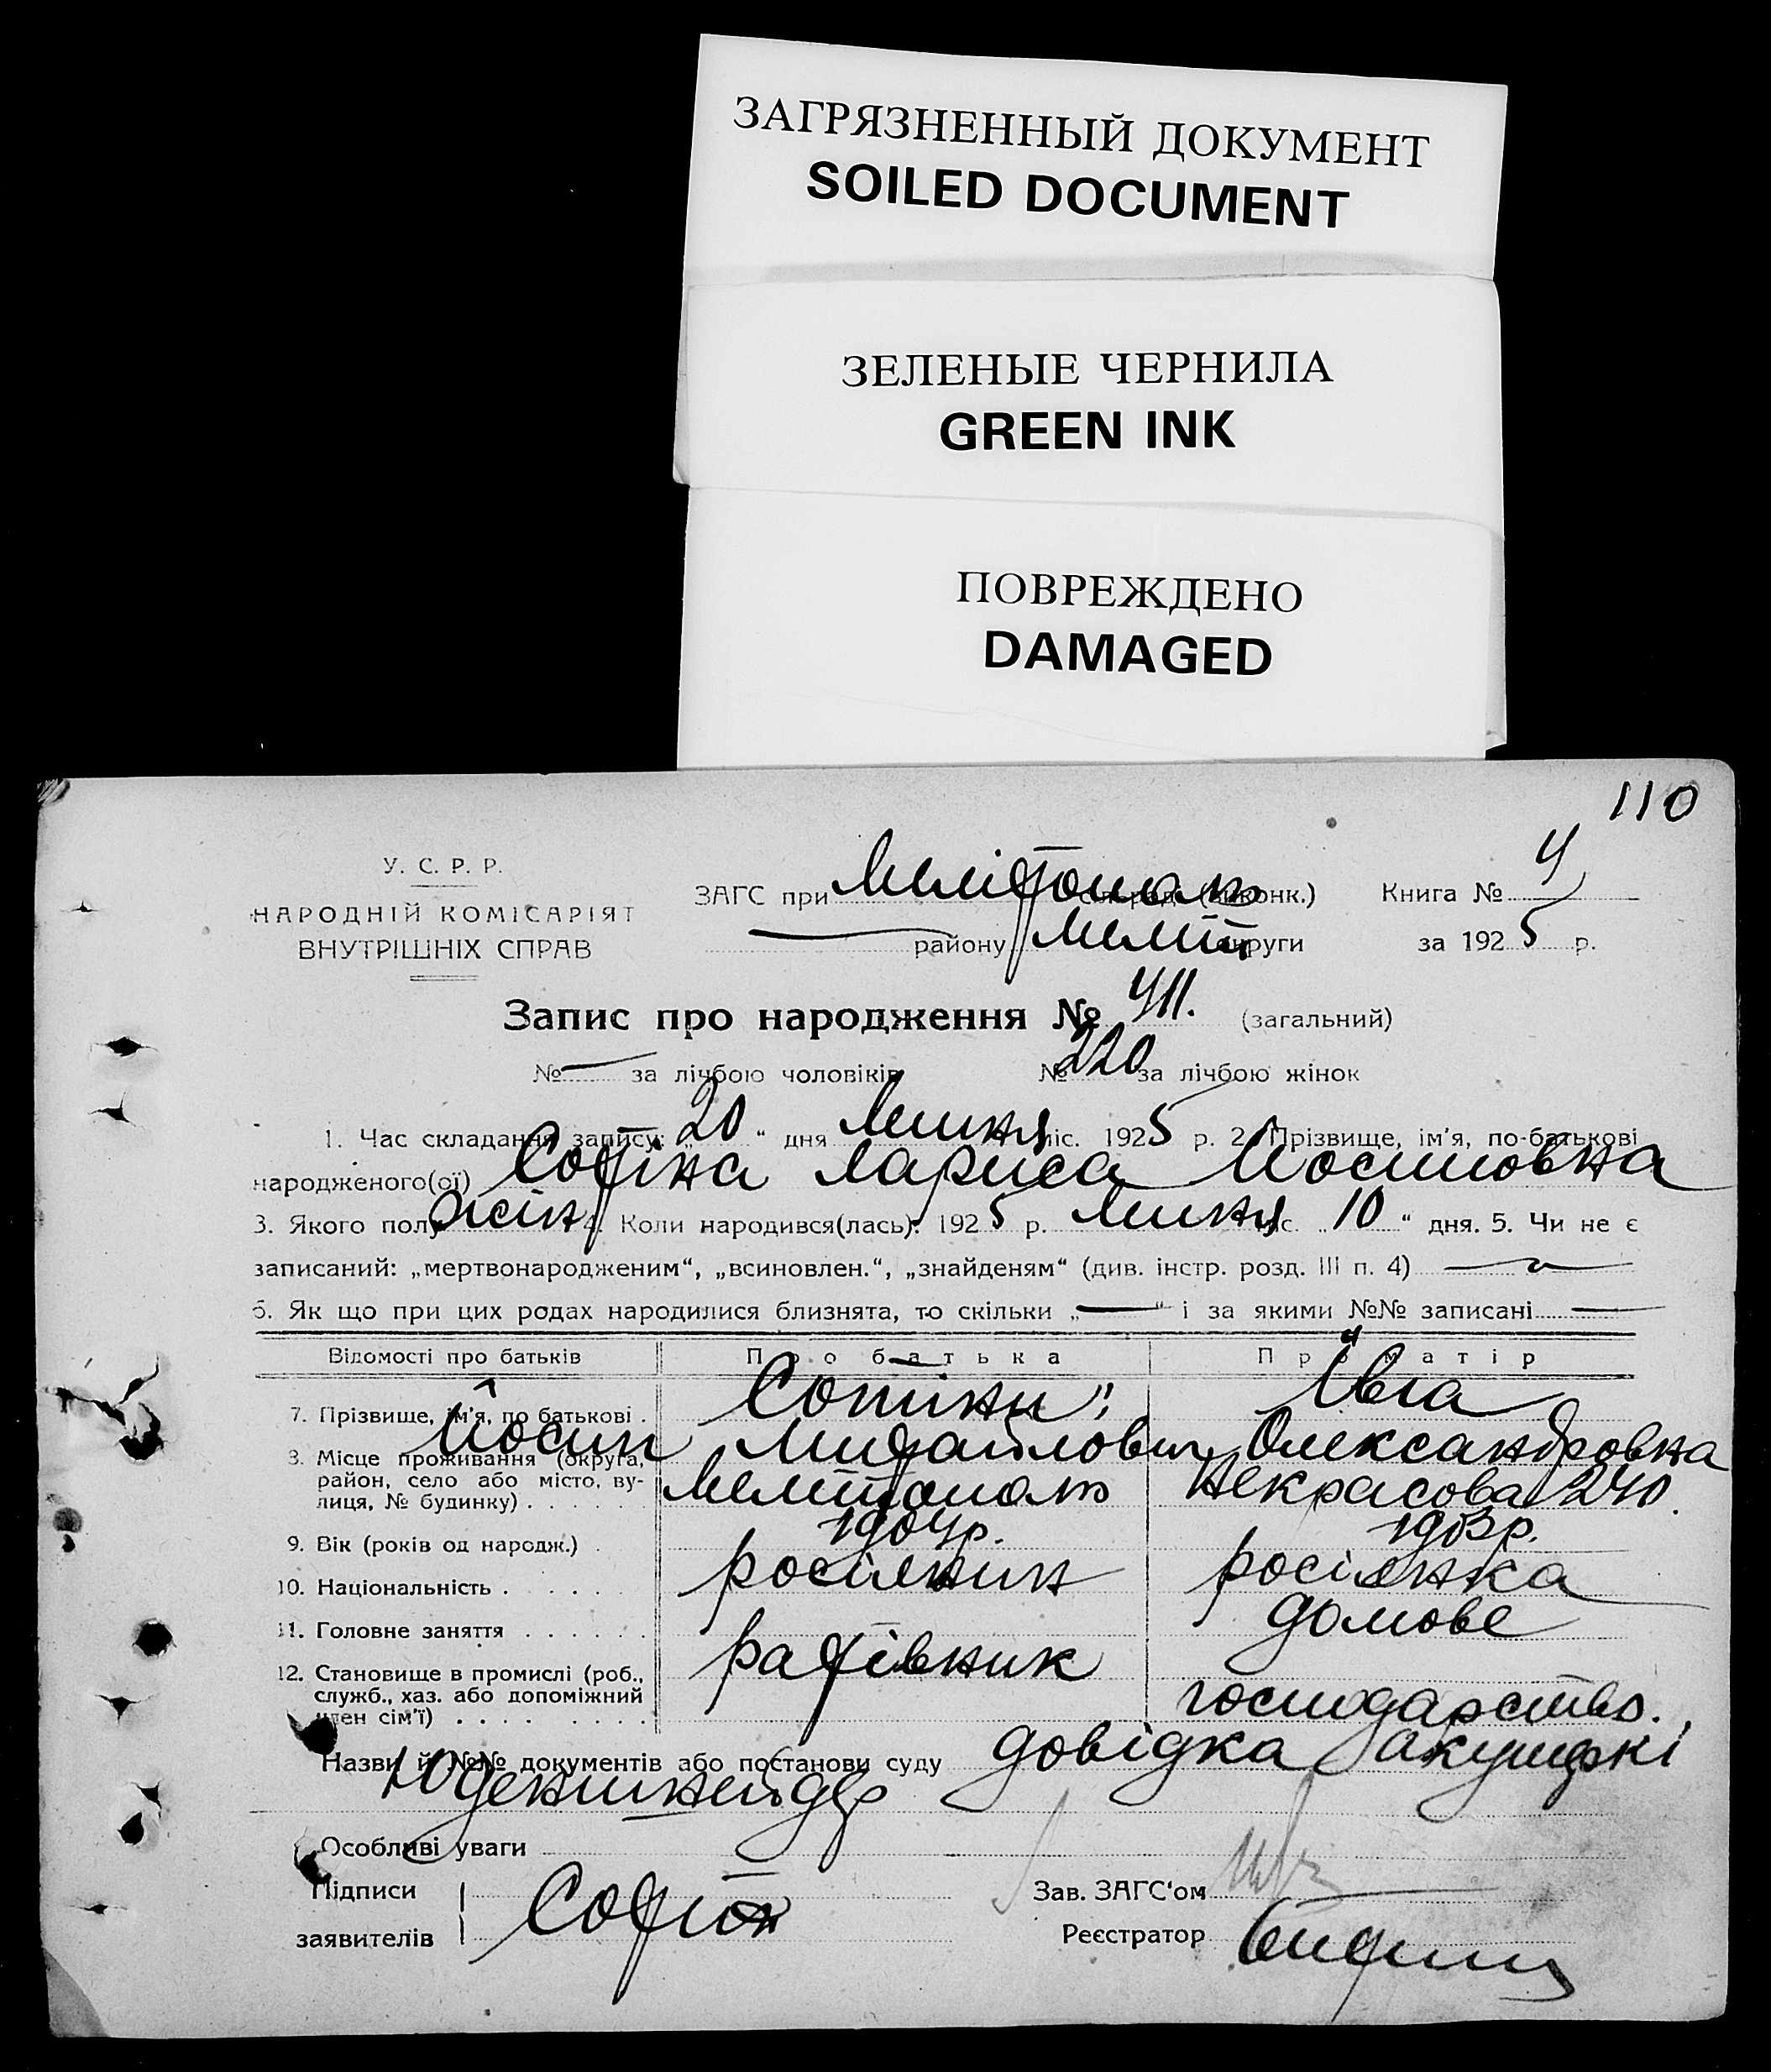 ЗАГРЯЗНЕННЫЙ ДОКУМЕНТ
SOILED DOCUMENT
ЗЕЛЕНЫЕ ЧЕРНИЛА
GREEN INK
ПОВРЕЖДЕНО
DAMAGED
110
У. С. Р. Р.
НАРОДНІЙ КОМІСАРІЯТ
ВНУТРІШНІХ СПРАВ
ЗАГС при Мелітополь сільраді (виконк.) Книга № 4
району Меліт округи за 1925 р.
Запис про народження № 411. (загальний)
№ — за лічбою чоловіків № 220 за лічбою жінок
1. Час складання запису: „20“ дня Липня міс. 1925 р. 2. Прізвище, ім’я, по-батькові
народженого(ої) Лариса Йосиповна
3. Якого полу жін 4. Коли народився(лась): 1925 р. Липня міс. „10“ дня. 5. Чи не є
записаний: „мертвонародженим“, „всиновлен.“, „знайденям“ (див. інстр. розд. III п. 4) —
6. Як що при цих родах народилися близнята, то скільки „—“ і за якими №№ записані —
Відомості про батьків Про батька Про матір
7. Прізвище, ім’я, по батькові . Йосип Михайлович Олександровна
8. Місце проживання (округа,
район, село або місто, ву-
лиця, № будинку) . . . . . . Мелітополь Некрасова 240.
9. Вік (років од народж.) . 1904р. 1903р.
10. Національність . . . . . росіянин росіянка
11. Головне заняття . . . . . . домове
12. Становище в промислі (роб.,
служб., хаз. або допоміжний
член сім’ї) . . . . . . . . . робівник господарство.
Назви й №№ документів або постанови суду довідка акушерки
Особливі уваги
Підписи
заявителів
Зав. ЗАГС‘ом
Реєстратор